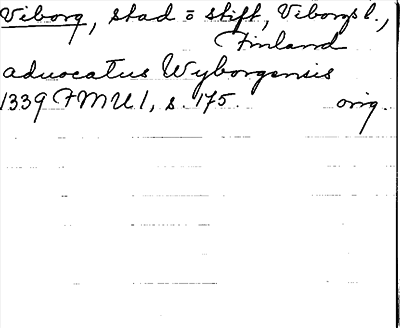 Viborg, stad o stift, Viborgs l.,
Finland
advocatus Wyborgensis
1339 FMU 1, s. 175. orig.